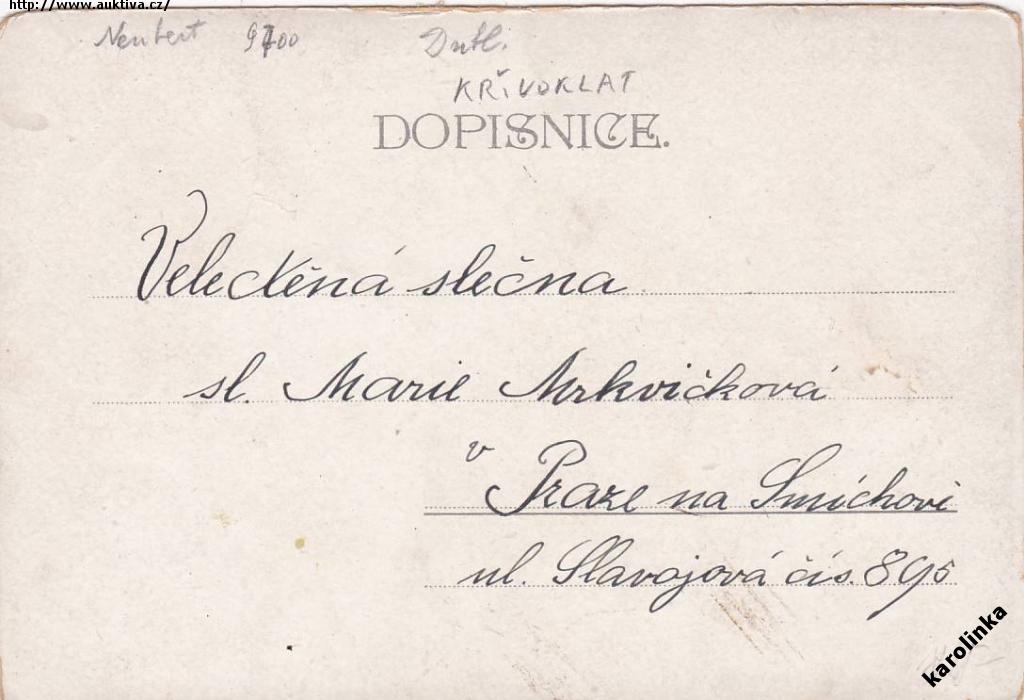 http://www.auktiva.cz/
Neubert 9400
KŘIVOKLAT
DOPISNICE.
Velectěná slečna
sl. Marie Mrkvičková
v Praze na Smíchově
ul. Slavojová čís. 895
karolinka